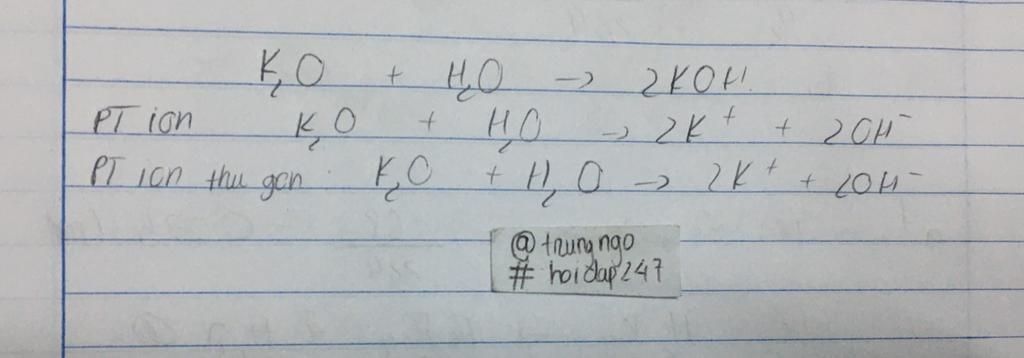 K₂O + H₂O → 2KOH
PT ion K₂O + H₂O → 2K⁺ + 2OH⁻
PT ion thu gọn K₂O + H₂O → 2K⁺ + 2OH⁻
@trungngo
# hoidap247